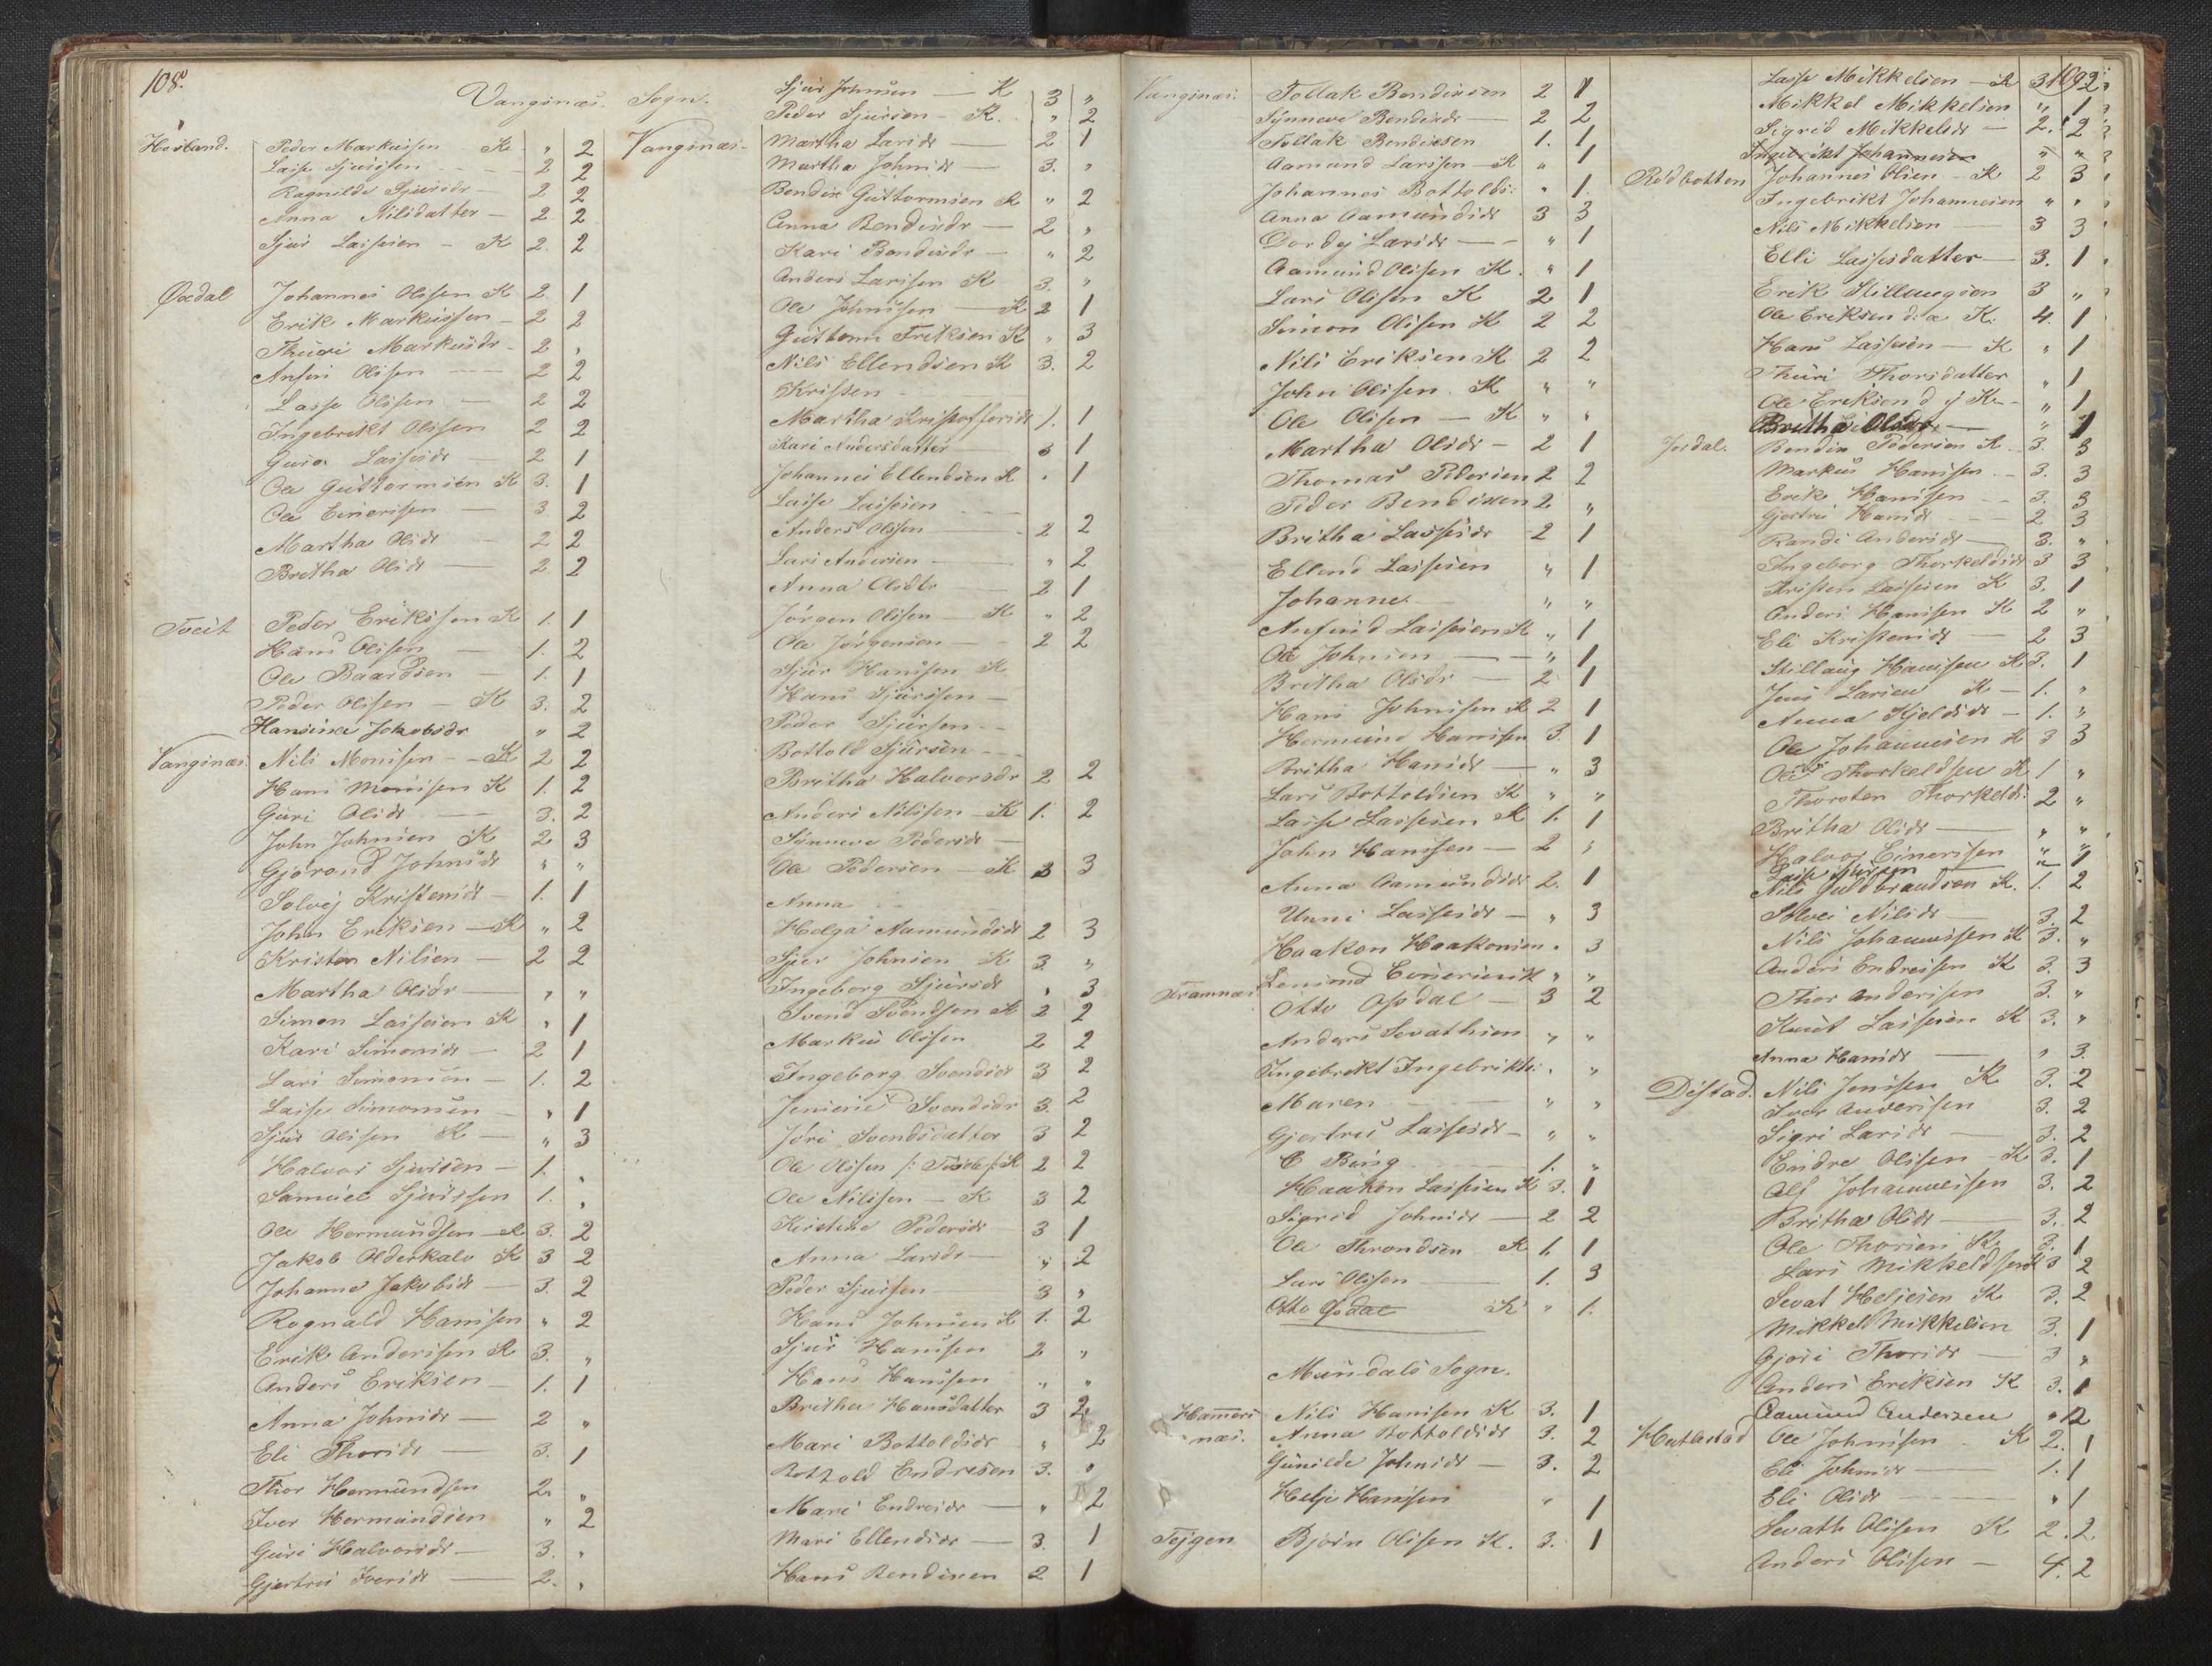 108.
Vangsnæs Sogn.
Peder Markussen K " 2
Lasse Sjurssen 2 2
Ragnilde Sjursdr 2 2
Anna Nilsdatter 2 2
Sjur Lassesen K 2 2
Øxdal Johannes Olssen K 2 1
Erik Markussen 2 2
Thuri Markusdr 2 "
Ansin Olssen 2 2
Lasse Olssen 2 2
Ingebrekt Olssen 2 2
Guro Lassesdr 2 1
Ole Guttormsen K 3. 1
Ole Einersen 3 2
Martha Olsdr 2 2
Britha Olsdr 2 2
Tveit Peder Erikssen K 1. 1
Hans Olssen 1. 2
Ole Baardsen 1. 1
Peder Olssen K 3. 2
Hansine Jakobsdr " 2
Vangsnæs Nils Monssen K 2 2
Hans Monssen K 1. 2
Guri Olsdr 3. 2
John Johnsen K 2 3
Gjørond Johnsdr " "
Solvej Kristensdr 1. 1
John Eriksen K " 2
Kristen Nilsen 2 2
Martha Olsdr " "
Simon Lassesen K " 1
Kari Simonsdr 2 1
Lars Simonsen 1. 2
Lasse Simonsen " 1
Sjur Olssen K " 3
Halvor Sjursen 1. "
Samuel Sjurssen 1. "
Ole Hermundsen K 3. 2
Jakob Olderkalv K 3 2
Johanne Jakobsdr 3. 2
Rognald Hanssen " 2
Erik Anderssen K 3. "
Anders Eriksen 1. 1
Anna Johnsdr 2 "
Eli Thorsdr 3. 1
Thor Hermundsen 2. "
Iver Hermundsen " 2
Guri Halvorsdr 3. "
Gjertru Iversdr 2. "
Sjur Johnsen K 3 "
Peder Sjursen K. " 2
Vangsnæs Martha Larsdr 2 1
Martha Johnsdr 3. "
Bendix Guttormsen K " 2
Anna Bendixdr 2 "
Kari Bendixdr " 2
Anders Larssen K 3. "
Ole Johnssen K 2 1
Guttorm Eriksen K " 3
Nils Ellendsen K 3. 2
Kristen
Martha Kristoffersdr 1. 1
Kari Andersdatter 3 1
Johannes Ellendsen K " 1
Lasse Lassesen
Anders Olssen 2 2
Lars Andersen " 2
Anna Olsdtr 2 1
Jørgen Olssen K " 2
Ole Jørgensen 2 2
Sjur Hanssen K
Hans Sjurssen
Peder Sjursen
Bottold Sjursen
Britha Halvorsdr 2 2
Anders Nilssen K 1. 2
Synneve Pedersdr
Ole Pedersen K 3 3
Anna
Helga Aamundsdr 2 3
Sjur Johnsen K 3. "
Ingeborg Sjursdr " 3
Svend Svendsen K 2 2
Markus Olssen 2 2
Ingeborg Svendsdr 3 2
Jensine Svendsdr 3. 2
Jøri Svendsdatter 3 2
Ole Olssen K 2 2
Ole Nilssen K 3 2
Kirstine Pedersdr 3 1
Anna Larsdr " 2
Peder Sjursen 3 "
Hans Johnsen K 1. 2
Sjur Hanssen 2 "
Hans Hanssen " "
Britha Hansdatter 3 2
Mari Bottoldsdr " 2
Bottold Endresen 3. "
Mari Endresdr " 2
Mari Ellendsdr 3. 1
Hans Bendixen 2 1
Vangsnæs. Tollak Bendixsen 2 1
Synneve Bendixdr 2 2
Tollak Bendixsen 1. 1
Aamund Larssen K " 1
Johannes Bottolds: " 1.
Anna Aamundsdr 3 3
Dordej Larsdr " 1
Aamund Olssen K. " 1
Lars Olssen K 2 1
Simon Olssen K 2 2
Nils Eriksen K 2 2
John Olssen K " "
Ole Olssen K " "
Martha Olsdr 2 1
Thomas Pedersen 2 2
Peder Bendixen 2 "
Britha Lassesdr 2 1
Ellend Lassesen " 1
Johanne " "
Anfind Lassesen K " 1
Ole Johnsen " 1
Britha Olsdr 2 1
Hans Johnssen K 2 1
Hermund Hanssen 3. 1
Britha Hansdr " 3
Lars Bottoldsen K " "
Lasse Lassesen K 1. 1
John Hanssen 2 "
Anna Aamundsdr 2. 1
Unni Lassesdr " 3
Haakon Haakonsen " 3
" "
Framnæs Otto Opdal 3 2
Anders Sevathsen " "
Ingebrekt Ingebrikts: " "
Maren " "
Gjertru Lassesdr " "
C Bing 1. "
Haakon Lassesen K 3. 1
Sigrid Johnsdr 2 2
Ole Throndsen K 1. 1
Lars Olssen 1. 3
Otto Opdal K " 1.
Mundals Sogn.
Hammers
næs. Nils Hanssen K 3. 1
Anna Bottoldsdr 3. 2
Gunilde Johnsdr 3. 2
Helje Hanssen " 1
Tejgen Bjørn Olssen K. 3. 1
109
Lasse Mikkelsen K 3 2
Mikkel Mikkelsen " 1
Sigrid Mikkelsdr 2. 2
Ingebrikt Johannesen " "
Rødbotten Johannes Olsen K 2 3
Ingebrikt Johannesen " "
Nils Mikkelsen 3 3
Elli Lassesdatter 3. 1
Erik Stillaugsen 3 "
Ole Eriksen d: æ K. 4. 1
Hans Lassesen K " 1
Thuri Thorsdatter " 1
Ole Eriksen d y K " 1
Britha Olsdr " 1
Jordal. Bendix Pedersen K. 3. 3
Markus Hanssen 3. 3
Erik Hanssen 3. 3
Gjertru Hansdr 2 3
Randi Andersdr 3. "
Ingeborg Thorkeldsdr 3 3
Kristen Lassesen K 3. 1
Anders Hanssen K 2 "
Eli Kristensdr 2 3
Stillaug Hanssen K 3. 1
Jens Larsen K 1. "
Anna Kjeldsdr 1. "
Ole Johannesen K 3 3
Ole Thorkeldsen K 1 "
Thorsten Thorkelds: 2 "
Britha Olsdr " "
Halvor Einersen " "
Lasse " 1
Nils Guldbrandsen K. 1. 2
Solvei Nilsdr 3. 2
Nils Johannessen K 3. "
Anders Endressen K 3. 3
Thor Anderssen 3. "
Knut Lassesen K 3. "
Anna Hansdr " 3.
Distad. Nils Jenssen K 3. 2
Iver Anderssen 3. 2
Sigri Larsdr 3. 2
Endre Olssen K 3. 1
Alf Johannessen 3. 2
Britha Olsdr 3. 2
Ole Thorsen K. 3. 1
Lars Mikkeldsen K 3 2
Sevat Heljesen K 3. 2
Mikkel Mikkelsen 3. 1
Gjøri Thorsdr 3 "
Anders Eriksen K 3. 1
Aamund Andersen " 2
Hatlestad Ole Johnssen K 2. 1
Eli Johnsdr 1. 1
Eli Olsdr " 1
Sevath Olssen K 2. 2.
Anders Olssen 4. 2